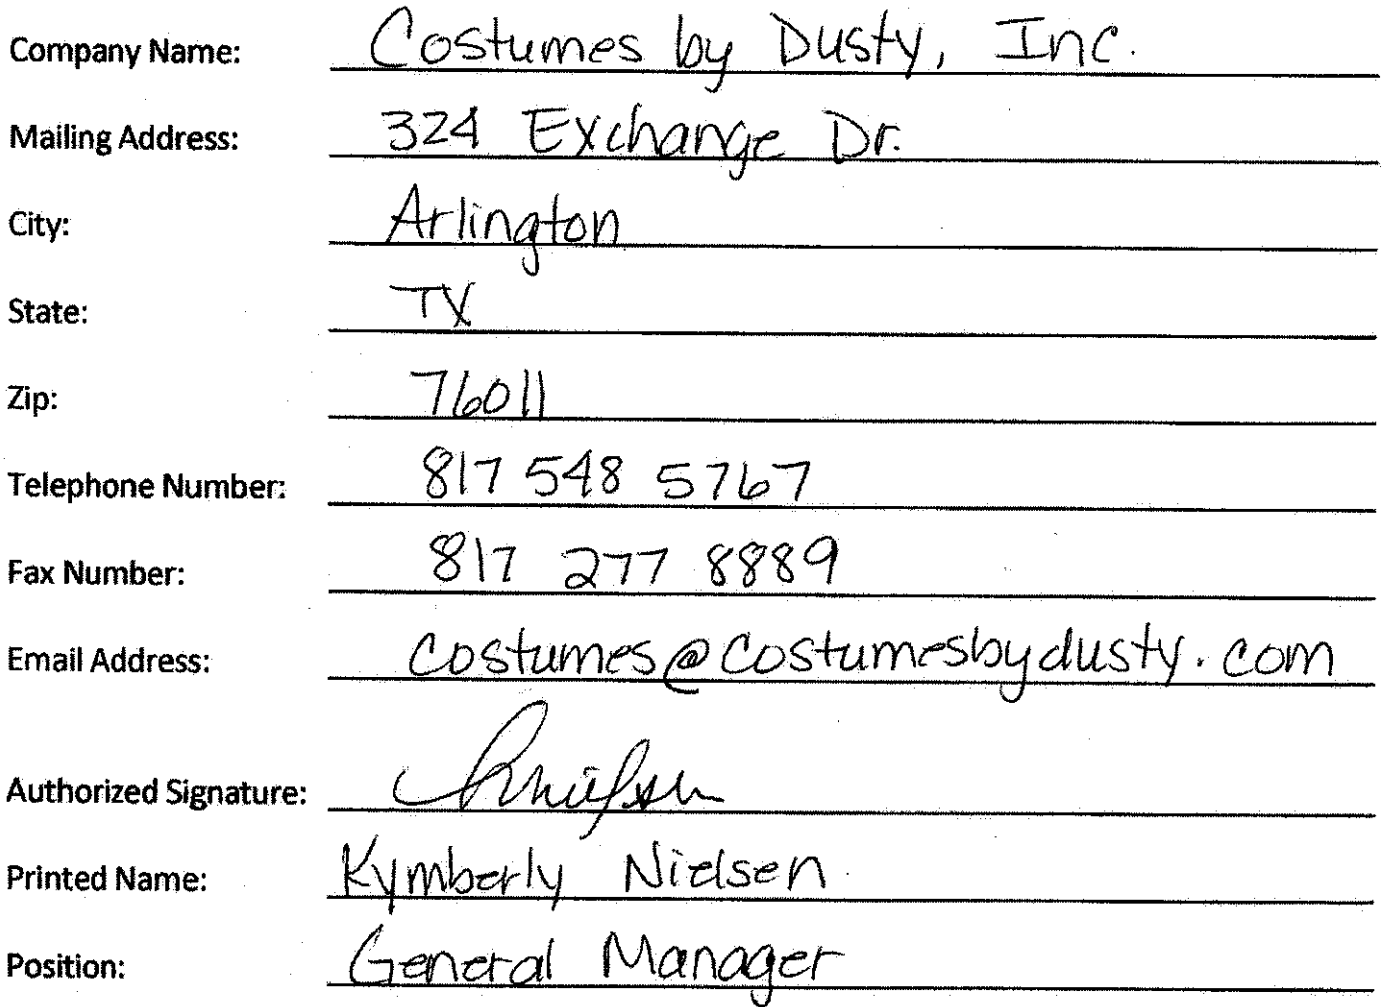 Company Name: Costumes by Dusty, Inc.
Mailing Address: 324 Exchange Dr.
City: Arlington
State: TX
Zip: 76011
Telephone Number: 817 548 5767
Fax Number: 817 277 8889
Email Address: costumes@costumesbydusty.com
Authorized Signature:
Printed Name: Kymberly Nielsen
Position: General Manager